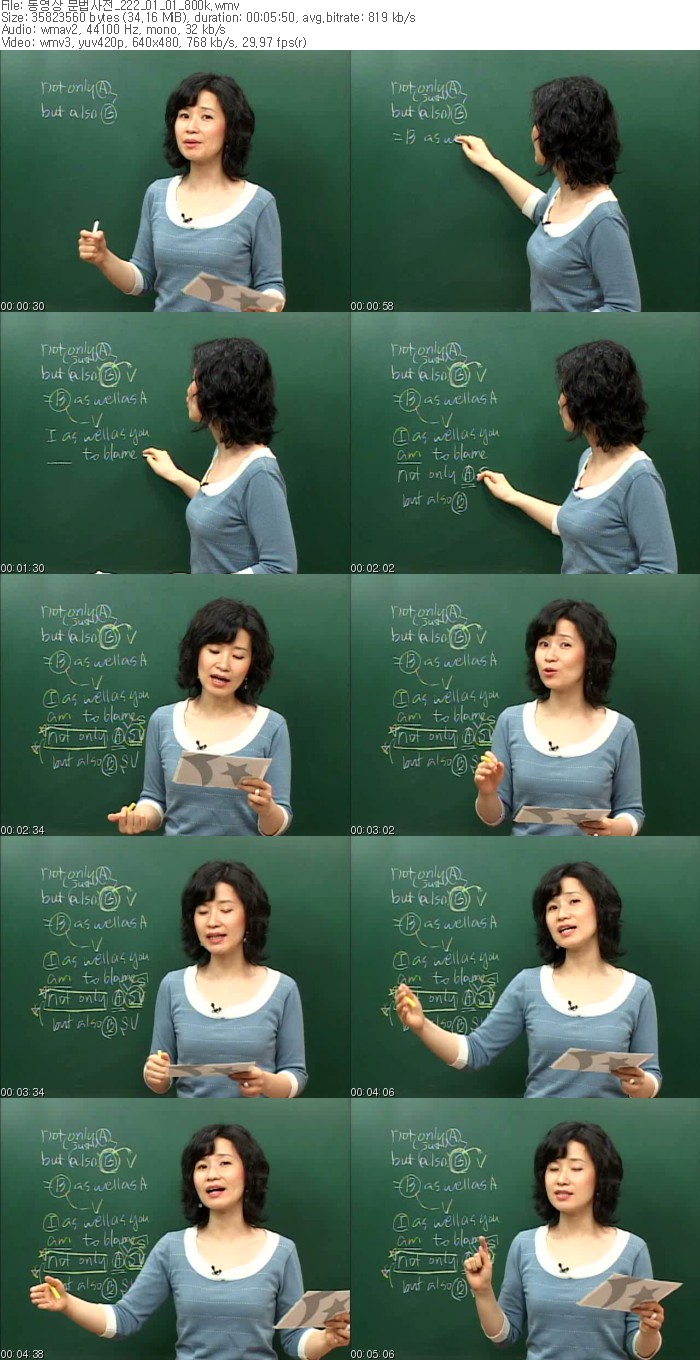 File: 동영상 문법사전_222_01_01_800k.wmv
Size: 35823560 bytes (34.16 MiB), duration: 00:05:50, avg.bitrate: 819 kb/s
Audio: wmav2, 44100 Hz, mono, 32 kb/s
Video: wmv3, yuv420p, 640x480, 768 kb/s, 29.97 fps(r)
not only A
but also B
00:00:30
not only A
(just)
but also B
=B as w
00:00:58
not only A
(just)
but also B V
=B as well as A
V
I as well as you
to blame
00:01:30
not only A
(just)
but also B V
=B as well as A
V
I as well as you
am to blame
not only A
but also B
00:02:02
not only A
(just)
but also B V
=B as well as A
V
I as well as you
am to blame
not only A
but also B SV
00:02:34
not only A
(just)
but also B V
=B as well as A
V
I as well as you
am to blame
not only A
but also B SV
00:03:02
not only A
(just)
but also B V
=B as well as A
V
I as well as you
am to blame
not only A
but also B SV
00:03:34
not only A
(just)
but also B V
=B as well as A
V
I as well as you
am to blame
not only A
but also B SV
00:04:06
not only A
(just)
but also B V
=B as well as A
V
I as well as you
am to blame
not only A
but also B SV
00:04:38
not only A
(just)
but also B V
=B as well as A
V
I as well as you
am to blame
not only A
but also B SV
00:05:06